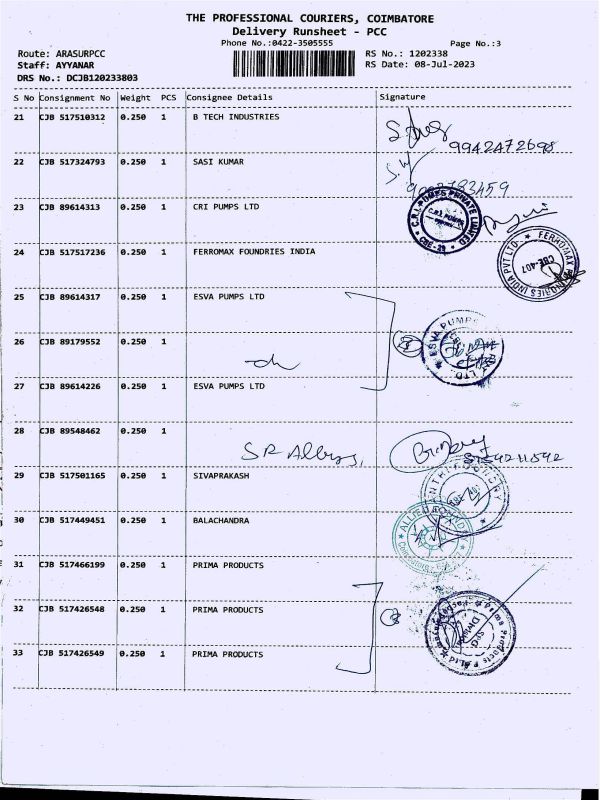 THE PROFESSIONAL COURIERS, COIMBATORE
Delivery Runsheet - PCC
Phone No.:0422-3505555
Page No.:3
Route: ARASURPCC
RS No.: 1202338
Staff: AYYANAR
RS Date: 08-Jul-2023
DRS No.: DCJB120233803
S No Consignment No Weight PCS Consignee Details Signature
21 CJB 517510312 0.250 1 B TECH INDUSTRIES
9942472698
22 CJB 517324793 0.250 1 SASI KUMAR
23 CJB 89614313 0.250 1 CRI PUMPS LTD
C.R.I. PUMPS PRIVATE LIMITED
CBE-39
24 CJB 517517236 0.250 1 FERROMAX FOUNDRIES INDIA
FERROMAX FOUNDRIES INDIA PVT LTD
CBE-407
25 CJB 89614317 0.250 1 ESVA PUMPS LTD
26 CJB 89179552 0.250 1
ESVA PUMPS
LTD.
27 CJB 89614226 0.250 1 ESVA PUMPS LTD
28 CJB 89548462 0.250 1
SR
29 CJB 517501165 0.250 1 SIVAPRAKASH
30 CJB 517449451 0.250 1 BALACHANDRA
31 CJB 517466199 0.250 1 PRIMA PRODUCTS
32 CJB 517426548 0.250 1 PRIMA PRODUCTS
Prima Products P Ltd
33 CJB 517426549 0.250 1 PRIMA PRODUCTS